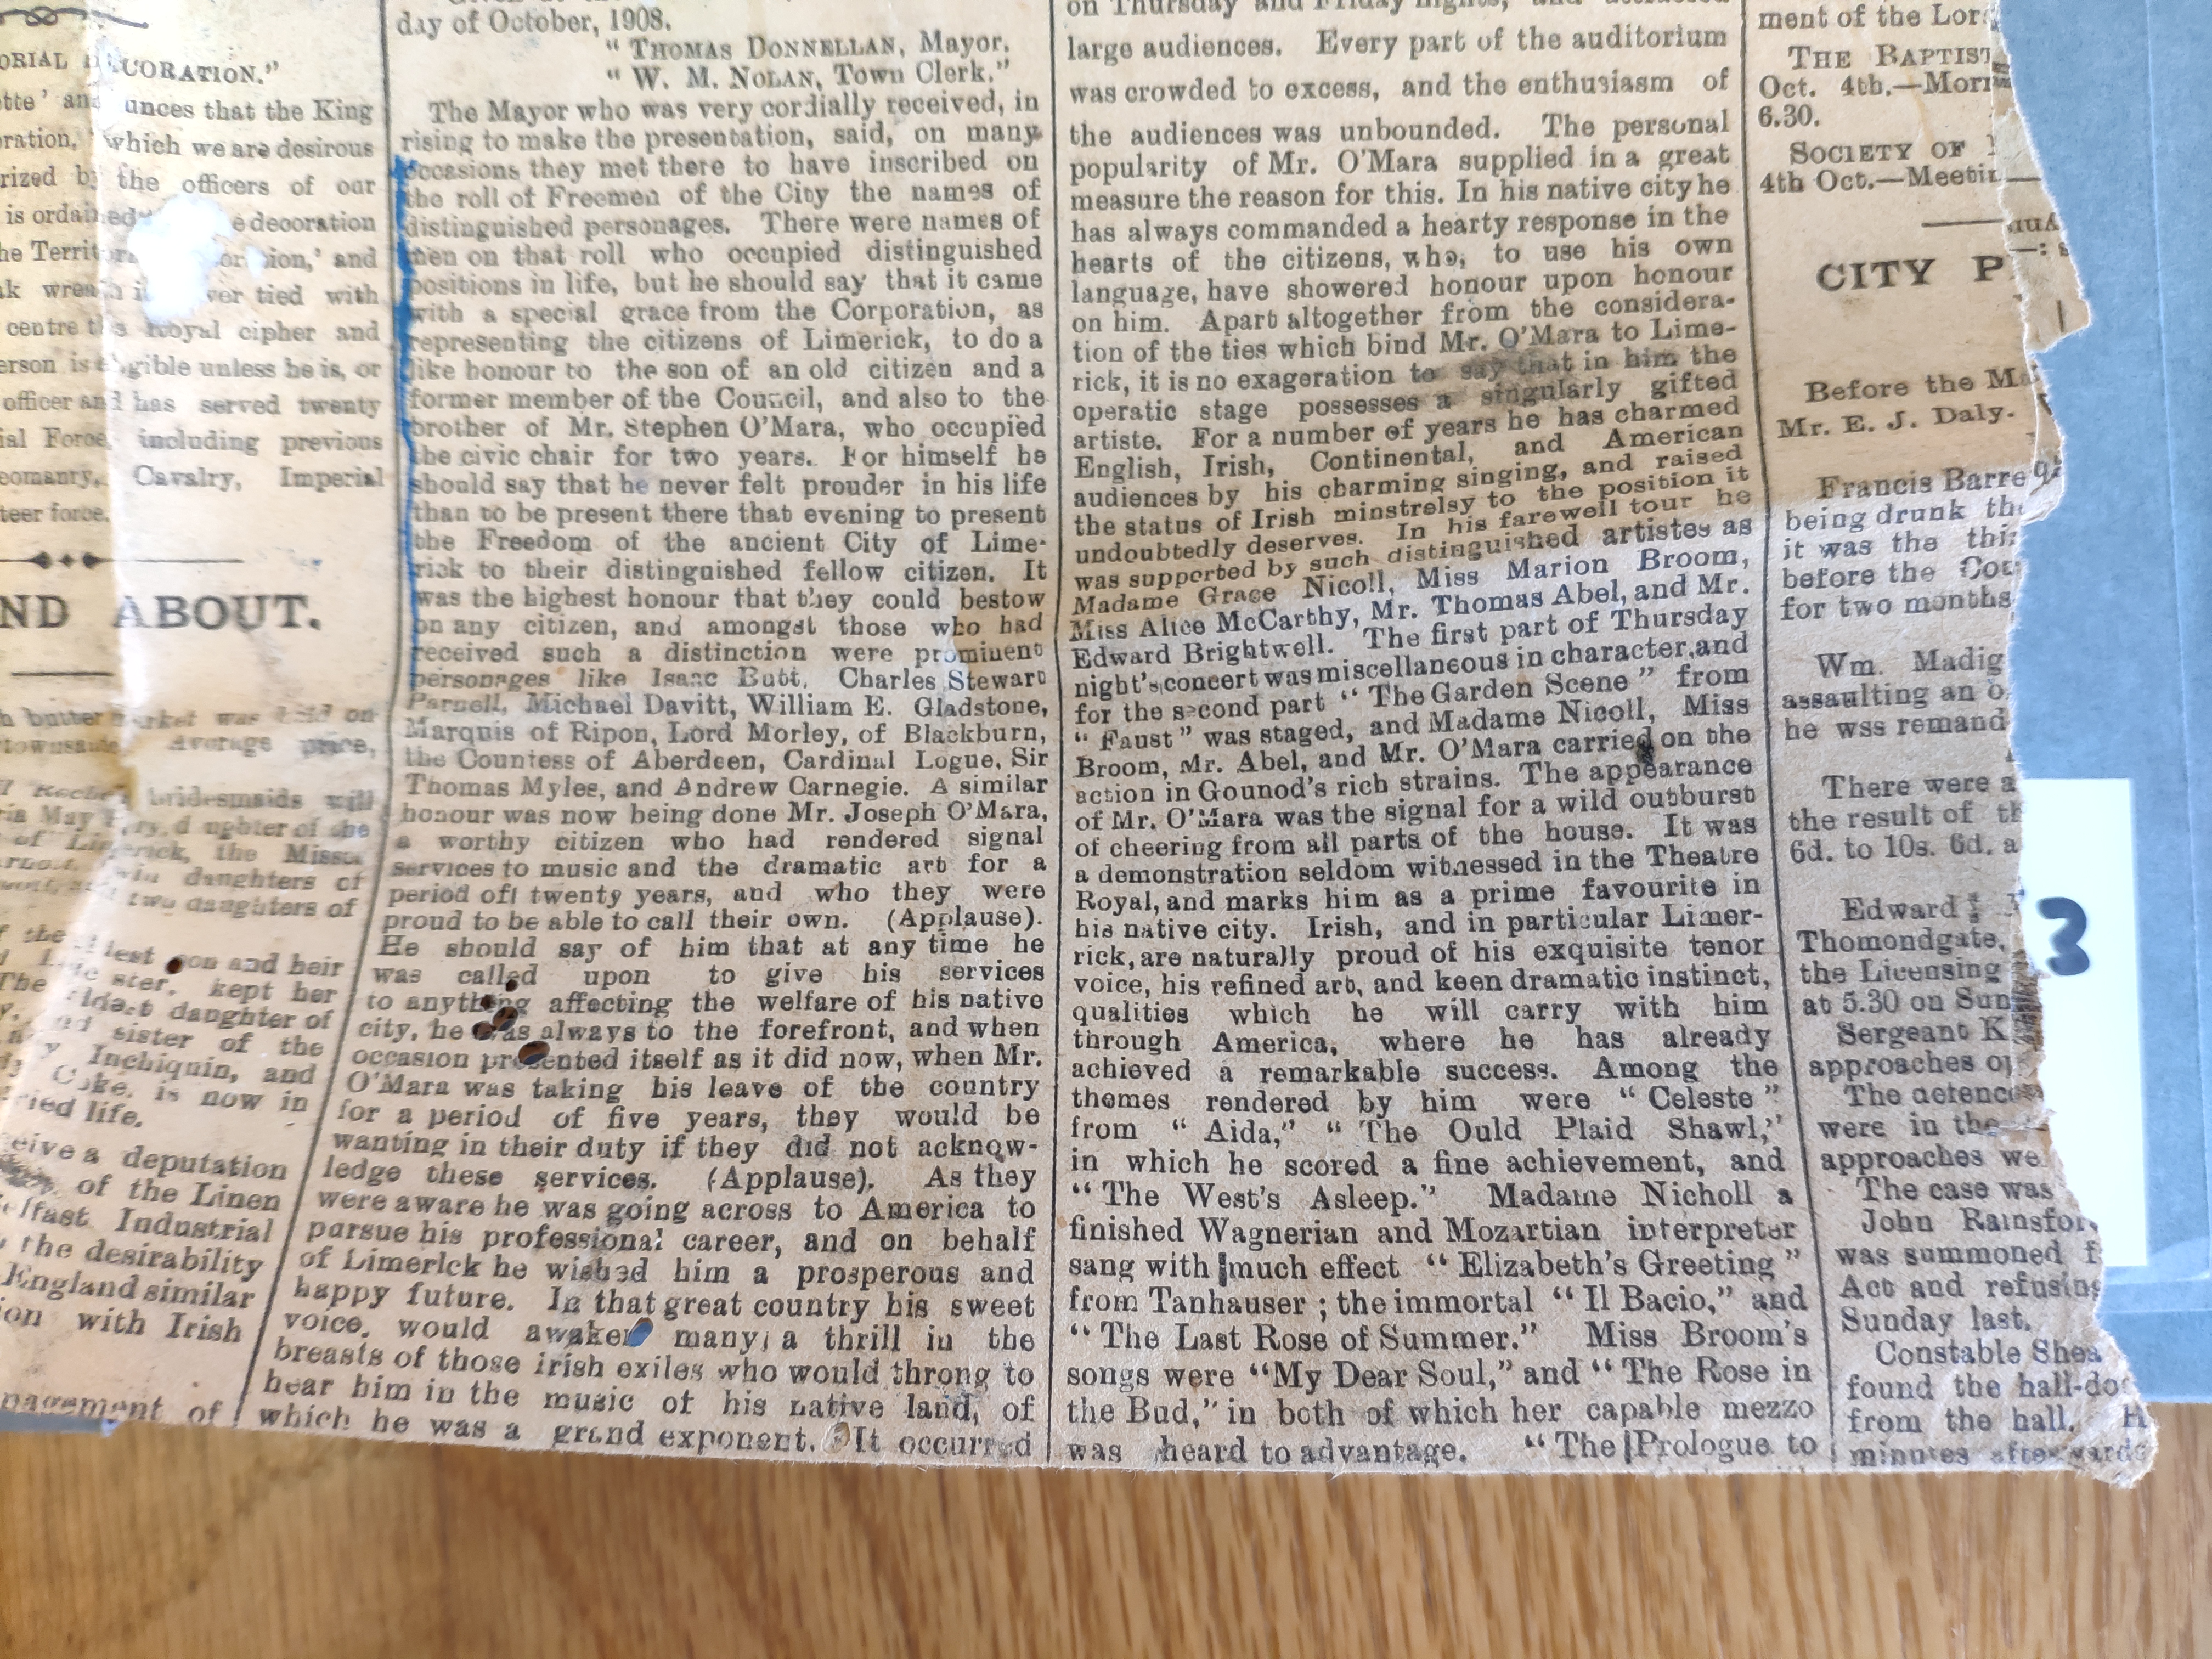 ORIAL CORATION."
tte' an unces that the King
ration, which we are desirous
rized b the officers of our
is ordained e decoration
he Territ ion,' and
k wrea ver tied with
centre Royal cipher and
erson is gible unless he is, or
officer and has served twenty
ial Force, including previous
eomanry, Cavalry, Imperial
teer force.
ND ABOUT.
butter rket was held on
Average price,
bridesmaids will
ria May ry, d ughter of the
of Limerick, the Misses
daughters of
two daughters of
the lest son and heir
ster, kept her
The daughter of
sister of the
Inchiquin, and
Coke, is now in
ried life.
eive a deputation
of the Linen
elfast Industrial
the desirability
England similar
ion with Irish
nagement of
day of October, 1908.
"THOMAS DONNELLAN, Mayor.
"W. M. NOLAN, Town Clerk."
The Mayor who was very cordially received, in
rising to make the presentation, said, on many
occasions they met there to have inscribed on
the roll of Freemen of the City the names of
distinguished personages. There were names of
men on that roll who occupied distinguished
positions in life, but he should say that it came
with a special grace from the Corporation, as
representing the citizens of Limerick, to do a
like honour to the son of an old citizen and a
former member of the Council, and also to the
brother of Mr. Stephen O'Mara, who occupied
the civic chair for two years. For himself he
should say that he never felt prouder in his life
than to be present there that evening to present
the Freedom of the ancient City of Lime-
rick to their distinguished fellow citizen. It
was the highest honour that they could bestow
on any citizen, and amongst those who had
received such a distinction were prominent
personages like Isaac Butt, Charles Stewart
Parnell, Michael Davitt, William E. Gladstone,
Marquis of Ripon, Lord Morley, of Blackburn,
the Countess of Aberdeen, Cardinal Logue, Sir
Thomas Myles, and Andrew Carnegie. A similar
honour was now being done Mr. Joseph O'Mara,
a worthy citizen who had rendered signal
services to music and the dramatic art for a
period of twenty years, and who they were
proud to be able to call their own. (Applause).
He should say of him that at any time he
was called upon to give his services
to anything affecting the welfare of his native
city, he was always to the forefront, and when
occasion presented itself as it did now, when Mr.
O'Mara was taking his leave of the country
for a period of five years, they would be
wanting in their duty if they did not acknow-
ledge these services. (Applause). As they
were aware he was going across to America to
pursue his professional career, and on behalf
of Limerick he wished him a prosperous and
happy future. In that great country his sweet
voice, would awaken many a thrill in the
breasts of those irish exiles who would throng to
hear him in the music of his native land, of
which he was a grand exponent. It occurred
on Thursday and Friday nights, and attracted
large audiences. Every part of the auditorium
was crowded to excess, and the enthusiasm of
the audiences was unbounded. The personal
popularity of Mr. O'Mara supplied in a great
measure the reason for this. In his native city he
has always commanded a hearty response in the
hearts of the citizens, who, to use his own
language, have showered honour upon honour
on him. Apart altogether from the considera-
tion of the ties which bind Mr. O'Mara to Lime-
rick, it is no exageration to say that in him the
operatic stage possesses a singularly gifted
artiste. For a number of years he has charmed
English, Irish, Continental, and American
audiences by his charming singing, and raised
the status of Irish minstrelsy to the position it
undoubtedly deserves. In his farewell tour he
was supported by such distinguished artistes as
Madame Grace Nicoll, Miss Marion Broom,
Miss Alice McCarthy, Mr. Thomas Abel, and Mr.
Edward Brightwell. The first part of Thursday
night's concert was miscellaneous in character, and
for the second part "The Garden Scene" from
"Faust" was staged, and Madame Nicoll, Miss
Broom, Mr. Abel, and Mr. O'Mara carried on the
action in Gounod's rich strains. The appearance
of Mr. O'Mara was the signal for a wild outburst
of cheering from all parts of the house. It was
a demonstration seldom witnessed in the Theatre
Royal, and marks him as a prime favourite in
his native city. Irish, and in particular Limer-
rick, are naturally proud of his exquisite tenor
voice, his refined art, and keen dramatic instinct,
qualities which he will carry with him
through America, where he has already
achieved a remarkable success. Among the
themes rendered by him were "Celeste"
from "Aida," "The Ould Plaid Shawl,"
in which he scored a fine achievement, and
"The West's Asleep." Madame Nicholl a
finished Wagnerian and Mozartian interpreter
sang with much effect "Elizabeth's Greeting"
from Tanhauser; the immortal "Il Bacio," and
"The Last Rose of Summer." Miss Broom's
songs were "My Dear Soul," and "The Rose in
the Bud," in both of which her capable mezzo
was heard to advantage. "The Prologue to
ment of the Lor
THE BAPTIST
Oct. 4th.—Morn
6.30.
SOCIETY OF
4th Oct.—Meetin
CITY P
Before the Ma
Mr. E. J. Daly.
Francis Barre
being drunk th
it was the thir
before the Cou
for two months
Wm. Madig
assaulting an o
he wss remand
There were a
the result of th
6d. to 10s. 6d. a
Edward
Thomondgate,
the Licensing
at 5.30 on Sun
Sergeant K
approaches of
The defence
were in the
approaches we
The case was
John Rainsfor
was summoned f
Act and refusing
Sunday last.
Constable Shea
found the hall-do
from the hall. H
minutes afterwards
3